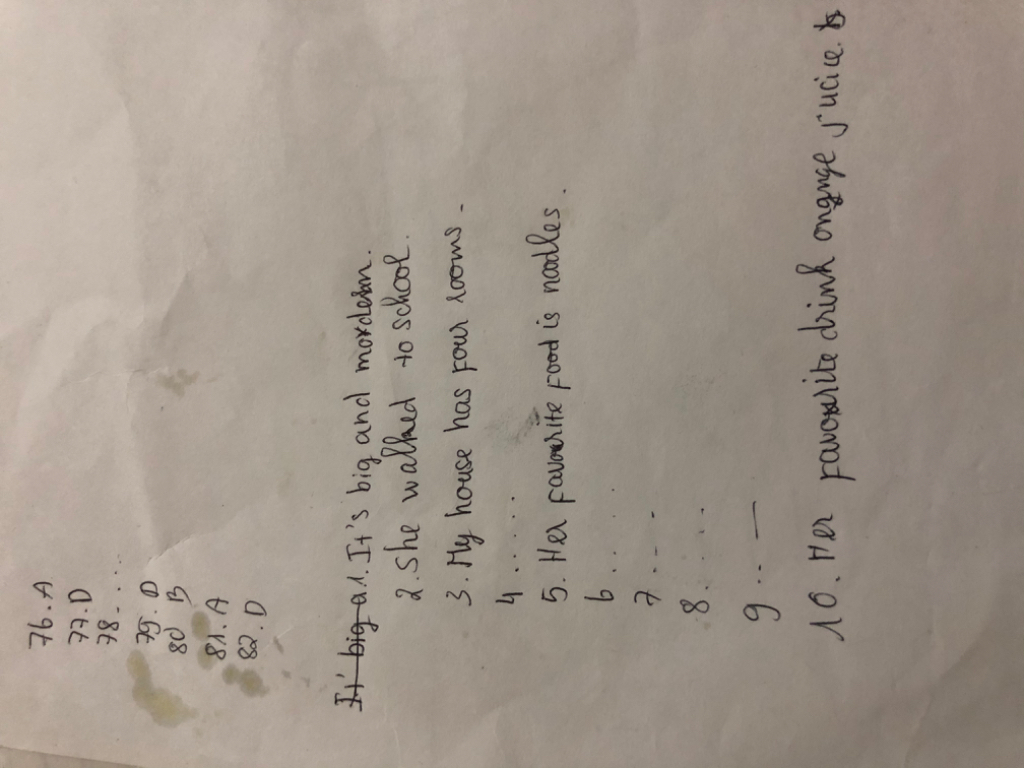 76.A
77.D
78. ...
79. D
80 B
81. A
82. D
It' big a1. It's big and mordern.
2. She walked to school.
3. My house has four rooms.
4 .....
5. Her favourite food is noodles.
6 ....
7 ....
8. ....
9 ... —
10. Her favourite drink ongnge juice